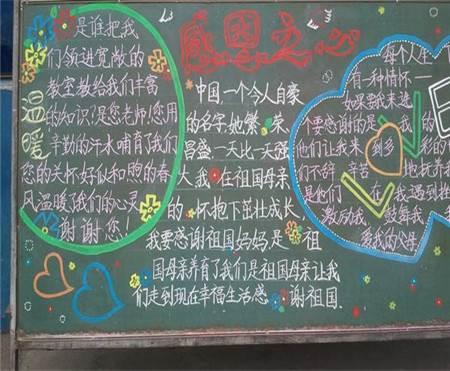 感恩之心
温暖
是谁把我
们领进宽敞的
教室教给我们丰富
的知识?是您老师!您用
辛勤的汗水哺育了我们
您的关怀好似和煦的春
风温暖了我们的心灵
谢谢您
中国,一个令人自豪
的名字,她繁荣
昌盛一天比一天强
大,我在祖国母亲
的怀抱下茁壮成长,
我要感谢祖国妈妈是祖
国母亲养育了我们是祖国母亲让我
们走到现在幸福生活感谢祖国.
每个人生
有一种情怀一
如果要说来述
要感谢的是我的
他们让我来到多彩的
们不辞辛苦地抚养我
是他们在我遇到挫
激励我鼓舞我
爱我的父母